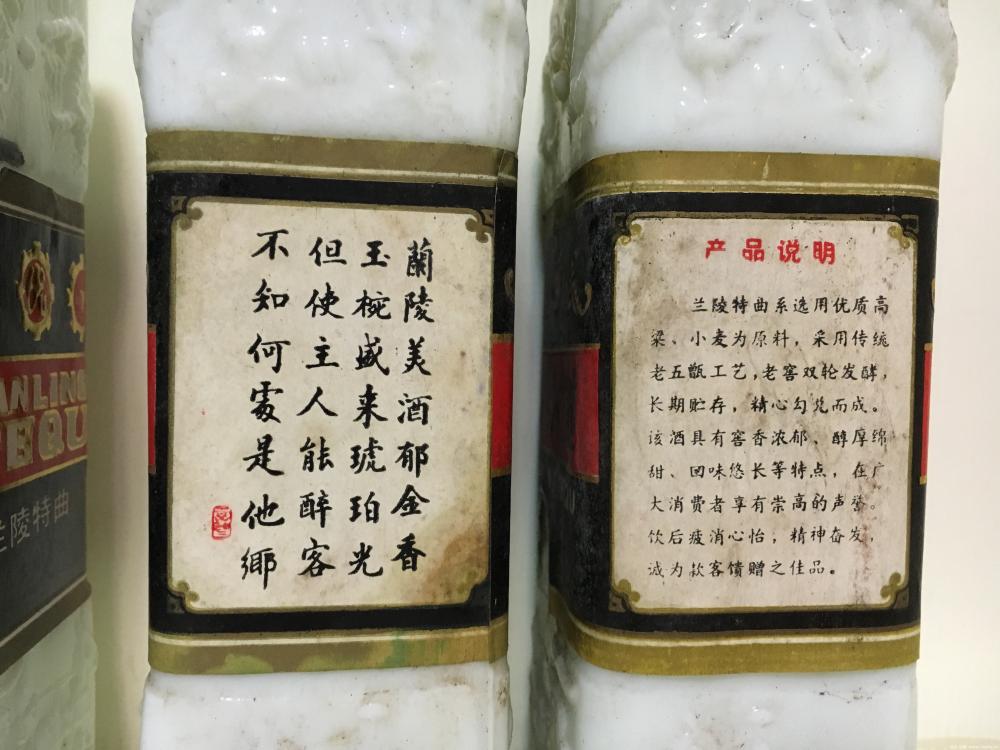 ANLING
EQU
兰陵特曲
蘭陵美酒郁金香
玉椀盛来琥珀光
但使主人能醉客
不知何處是他鄉
产品说明
兰陵特曲系选用优质高
粱、小麦为原料，采用传统
老五甑工艺，老窖双轮发酵，
长期贮存，精心勾兑而成。
该酒具有窖香浓郁、醇厚绵
甜、回味悠长等特点，在广
大消费者享有崇高的声誉。
饮后疲消心怡，精神奋发，
诚为款客馈赠之佳品。